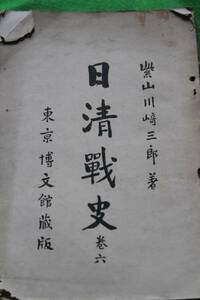 紫山川崎三郎著
日清戰史 卷六
東京博文館蔵版